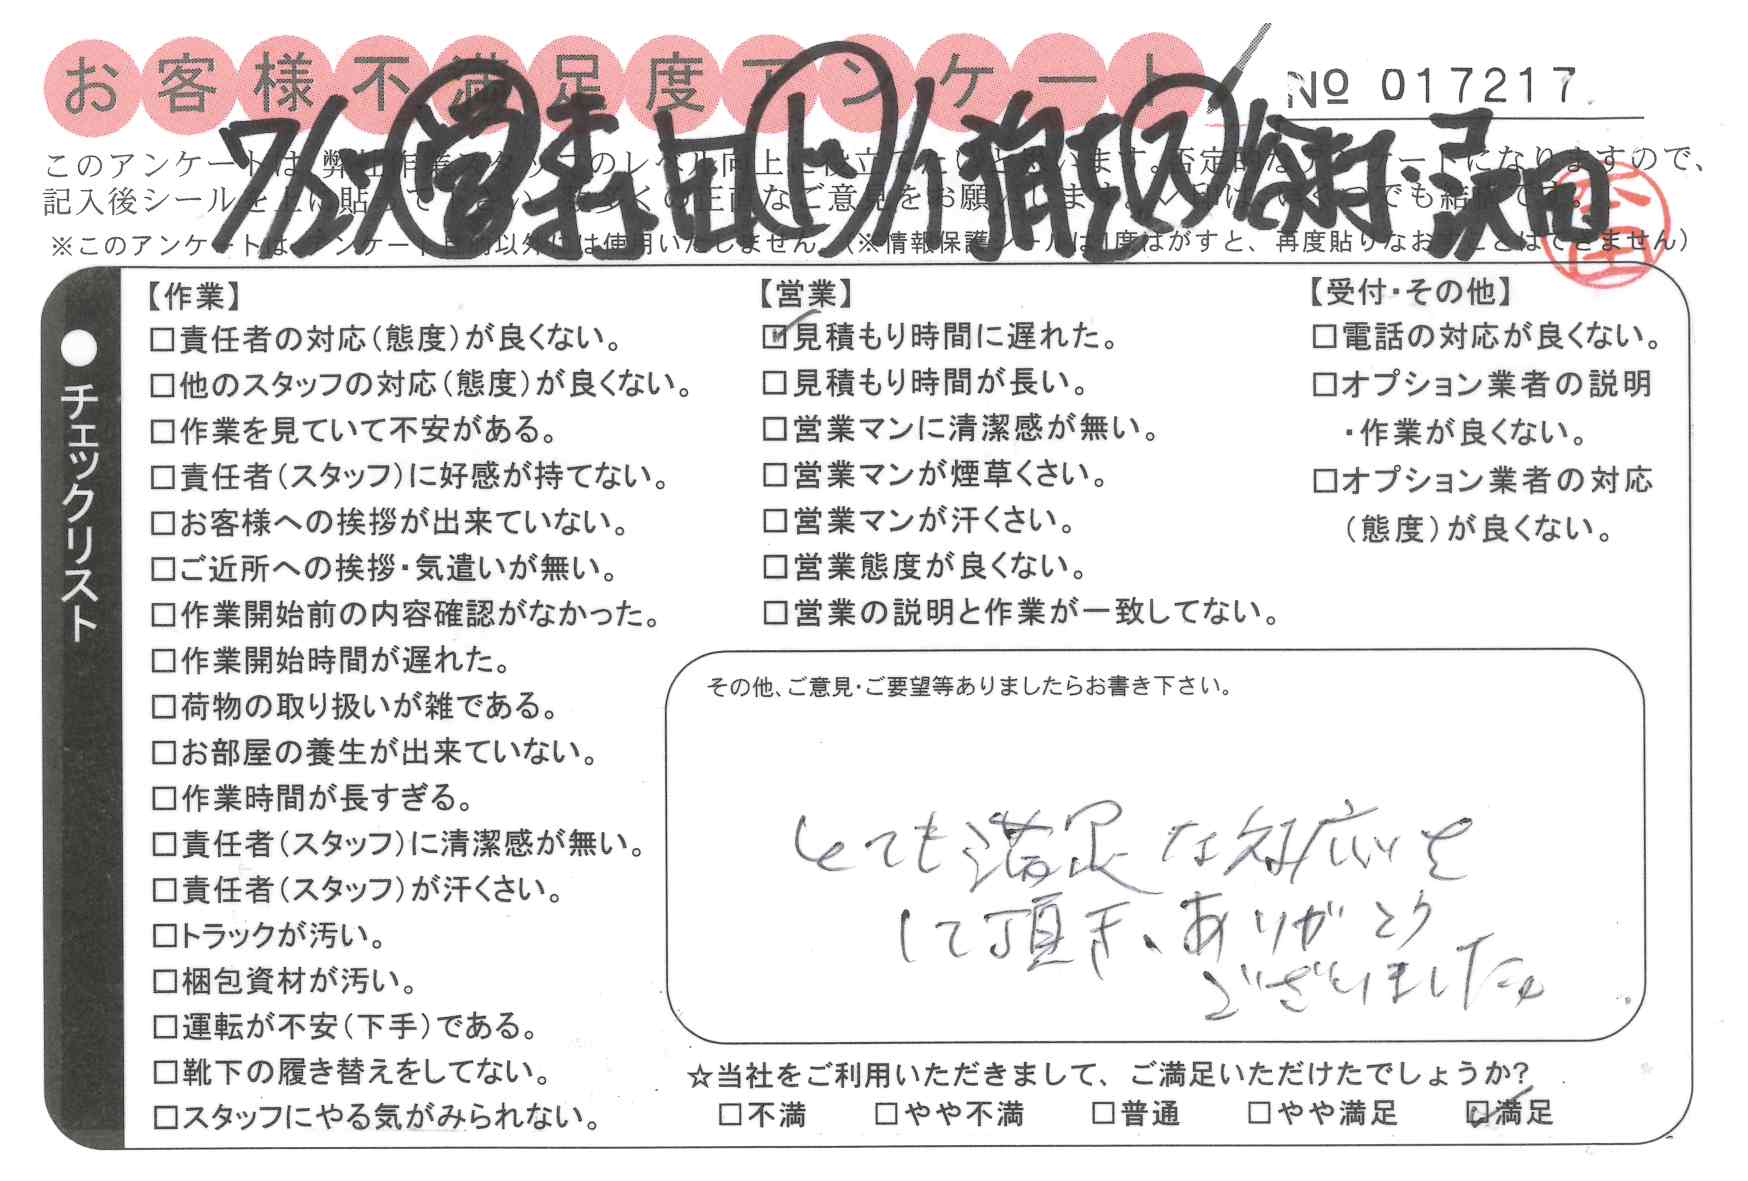 お客様不満足度アンケート
№ 017217
このアンケートは 弊社作業スタッフのレベル向上に役立てたいと思います。否定的なアンケートになりますので、
記入後シールを上に貼って下さい。数多くの正直なご意見をお願いします。
※このアンケートは、アンケート目的以外には使用いたしません。(※情報保護シールは1度はがすと、再度貼りなおすことはできません)
チェックリスト
【作業】
□責任者の対応(態度)が良くない。
□他のスタッフの対応(態度)が良くない。
□作業を見ていて不安がある。
□責任者(スタッフ)に好感が持てない。
□お客様への挨拶が出来ていない。
□ご近所への挨拶・気遣いが無い。
□作業開始前の内容確認がなかった。
□作業開始時間が遅れた。
□荷物の取り扱いが雑である。
□お部屋の養生が出来ていない。
□作業時間が長すぎる。
□責任者(スタッフ)に清潔感が無い。
□責任者(スタッフ)が汗くさい。
□トラックが汚い。
□梱包資材が汚い。
□運転が不安(下手)である。
□靴下の履き替えをしてない。
□スタッフにやる気がみられない。
【営業】
☑見積もり時間に遅れた。
□見積もり時間が長い。
□営業マンに清潔感が無い。
□営業マンが煙草くさい。
□営業マンが汗くさい。
□営業態度が良くない。
□営業の説明と作業が一致してない。
【受付・その他】
□電話の対応が良くない。
□オプション業者の説明
・作業が良くない。
□オプション業者の対応
(態度)が良くない。
その他、ご意見・ご要望等ありましたらお書き下さい。
とても満足な対応を
して頂き、ありがとう
ございました。
☆当社をご利用いただきまして、ご満足いただけたでしょうか?
□不満 □やや不満 □普通 □やや満足 ☑満足